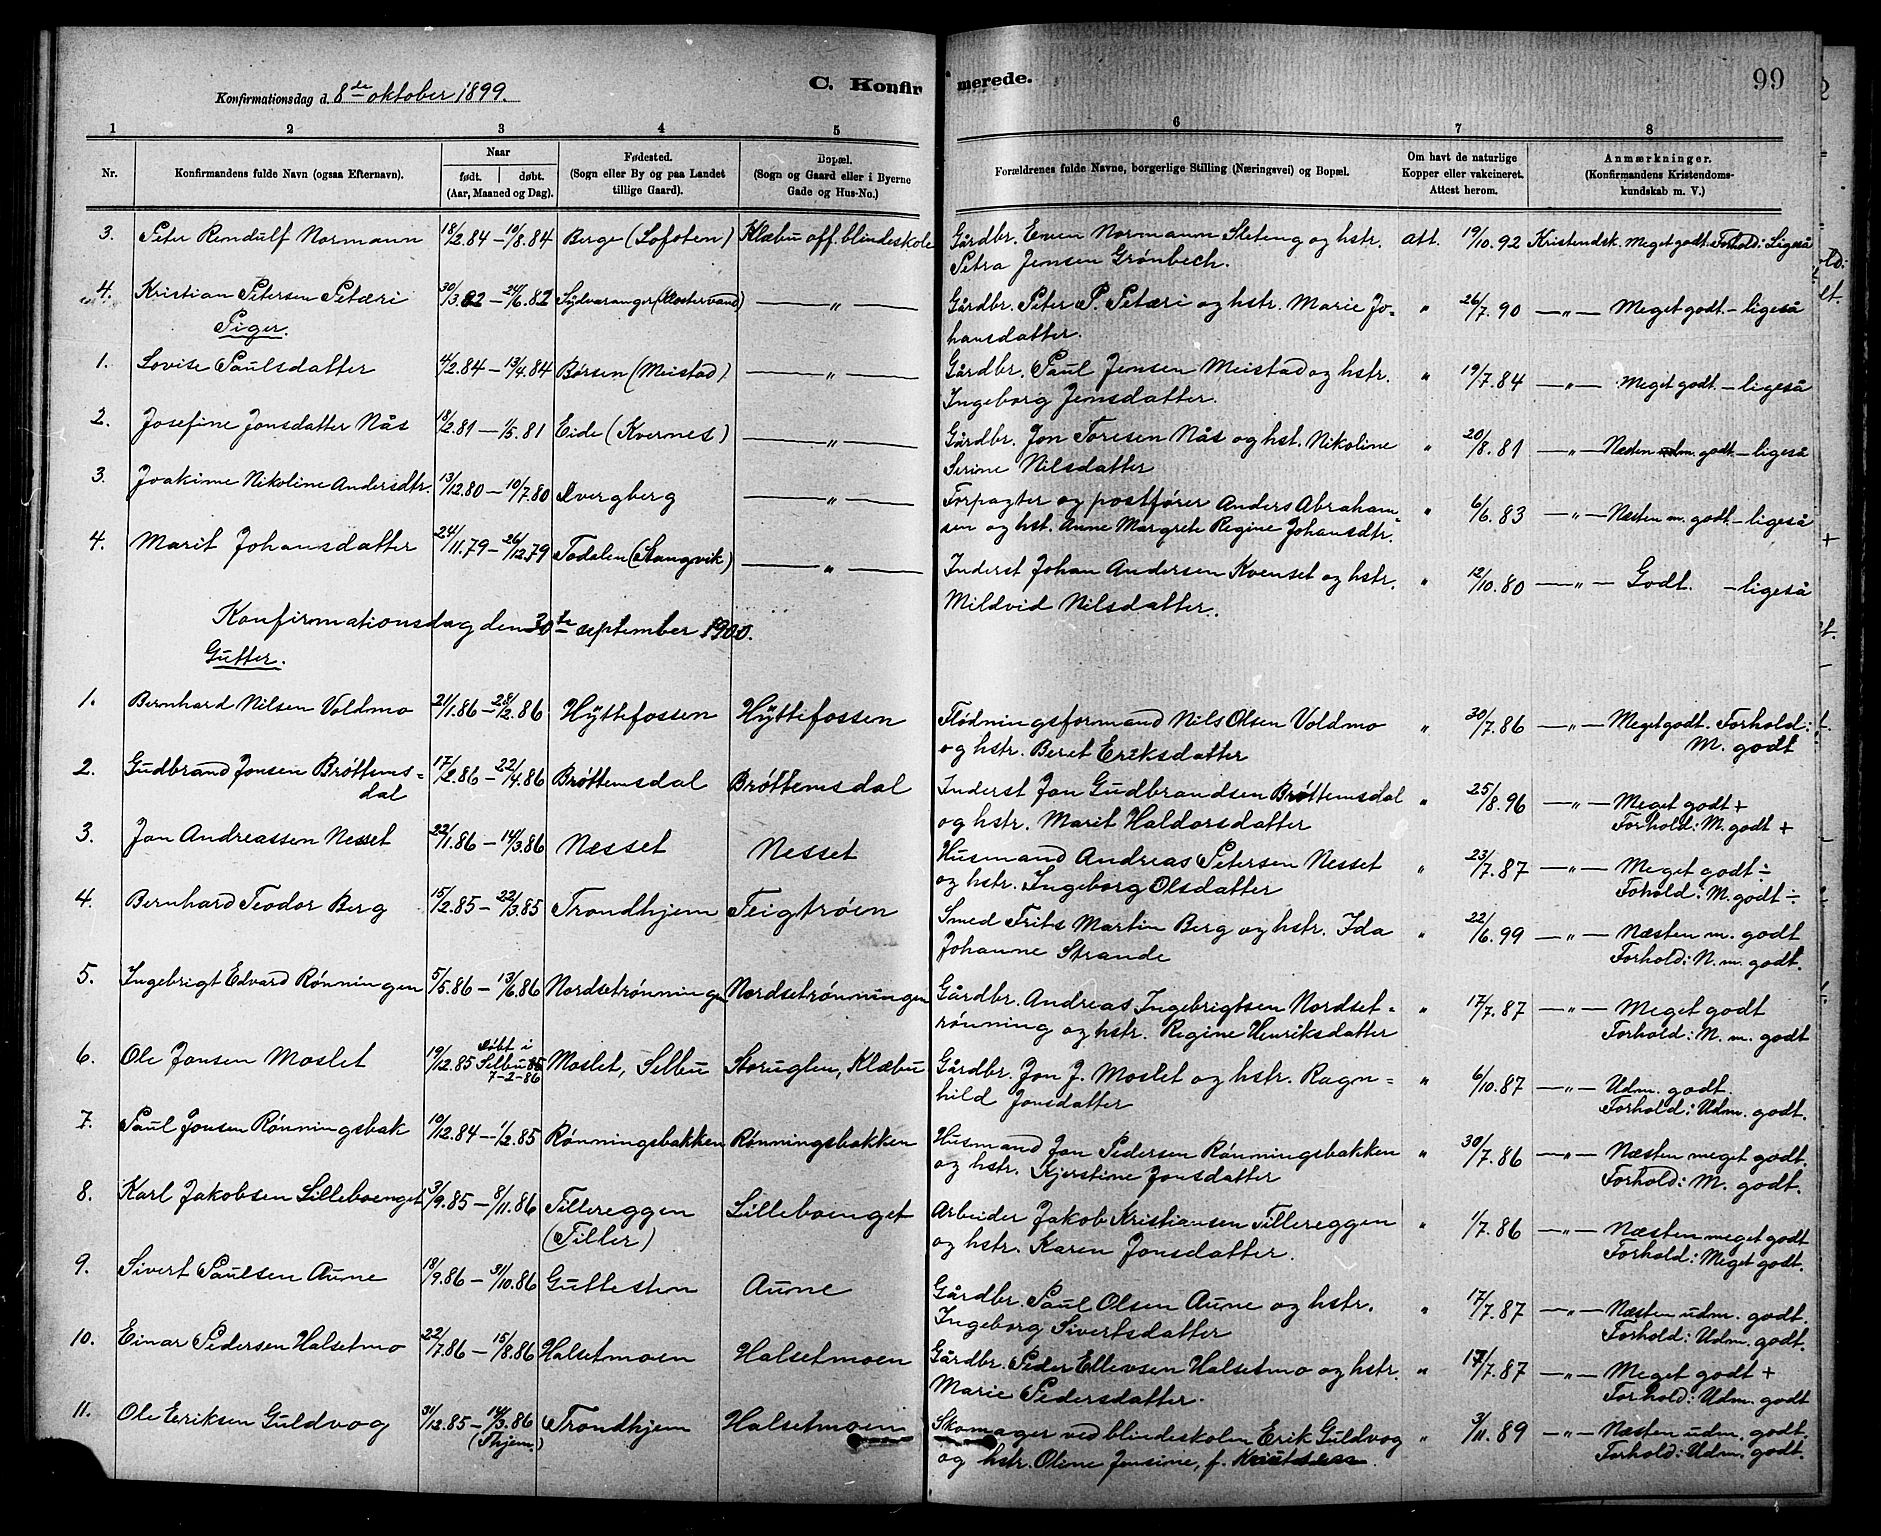 Konfirmationsdag d. 8de oktober 1899.
C. Konfirmerede.
99
1 2 3 4 5 6 7 8
Nr. Konfirmandens fulde Navn (ogsaa Efternavn). Naar født. døbt. (Aar, Maaned og Dag). Fødested. (Sogn eller By og paa Landet tillige Gaard). Bopæl. (Sogn og Gaard eller i Byerne Gade og Hus-No.) Forældrenes fulde Navne, borgerlige Stilling (Næringsvei) og Bopæl. Om havt de naturlige Kopper eller vakcineret. Attest herom. Anmærkninger. (Konfirmandens Kristendomskundskab m. V.)
3. Peter Rendulf Normann 18/2.84 – 10/8.84 Berge (Lofoten) Klæbu off. blindeskole Gårdbr. Enen Normann Sleteng og hstr. att. 19/10.92 Kristendsk. Meget godt. Forhold: Ligeså
Petra Jensen Grønbech.
4. Kristian Petersen Petæri 30/3.82 – 24/6.82 Sydvaranger (Klostervand) — „ — Gårdbr. Peter P. Petæri og hstr. Marie Jo- „ 26/7.90 — „ — Meget godt. – ligeså
hansdatter.
Piger.
1. Lovise Paulsdatter 4/2.84 – 13/4.84 Børsen (Meistad) — „ — Gårdbr. Paul Jensen Meistad og hstr. „ 19/7.84 — „ — Meget godt. – ligeså
Ingeborg Jensdatter.
2. Josefine Jonsdatter Nås 18/2.81 – 1/5.81 Eide (Kvernes) — „ — Gårdbr. Jon Toresen Nås og hst. Nikoline „ 20/8.81 — „ — Næsten m. godt. – ligeså
Serine Nilsdatter
3. Joakime Nikoline Andersdtr. 13/12.80 – 10/7.80 Dvergberg — „ — Forpagter og postfører Anders Abraham- „ 6/6.83 — „ — Næsten m. godt. – ligeså
sen og hst. Anne Margrete Regine Johansdtr.
4. Marit Johansdatter 24/11.79 – 26/12.79 Todalen (Stangvik) — „ — Inderst Johan Andersen Kvenset og hstr. „ 12/10.80 — „ — Godt. – ligeså
Mildvid Nilsdatter.
Konfirmationsdag den 30te september 1900.
Gutter.
1. Bernhard Nilsen Voldmo 21/1.86 – 28/2.86 Hyttefossen Hyttefossen Flødningsformand Nils Olsen Voldmo „ 30/7.86 — „ — Meget godt. Forhold:
og hstr. Beret Eriksdatter M. godt
2. Gudbrand Jonsen Brøttems= 17/2.86 – 22/4.86 Brøttemsdal Brøttemsdal Inderst Jon Gudbrandsen Brøttemsdal „ 25/8.96 — „ — Meget godt +
dal og hstr. Marit Haldorsdatter Forhold: M. godt +
3. Jon Andreassen Nesset 22/1.86 – 14/3.86 Nesset Nesset Husmand Andreas Petersen Nesset „ 23/7.87 — „ — Meget godt ÷
og hstr. Ingeborg Olsdatter Fohold: M. godt ÷
4. Bernhard Teodor Berg 15/2.85 – 22/3.85 Trondhjem Teigtrøen Smed Frits Martin Berg og hstr. Ida „ 22/6.99 — „ — Næsten m. godt
Johanne Strande Forhold: N. m. godt.
5. Ingebrigt Edvard Rønningen 5/5.86 – 13/6.86 Nordsetrønningen Nordsetrønningen Gårdbr. Andreas Ingebrigtsen Nordset= „ 17/7.87 — „ — Meget godt
rønning og hstr. Regine Henriksdatter Forhold: N. m. godt
6. Ole Jonsen Moslet 19/12.85 Døbt i Selbu 7-2-86 Moslet, Selbu Storuglen, Klæbu Gårdbr. Jon J. Moslet og hstr. Ragn= „ 6/10.87 — „ — Udm. godt.
hild Jonsdatter Forhold: Udm. godt.
7. Paul Jonsen Rønningsbak 10/12.84 – 1/2.85 Rønningsbakken Rønningsbakken Husmand Jon Pedersen Rønningsbakken „ 30/7.86 — „ — Næsten meget godt.
og hstr. Kjerstine Jonsdatter Forhold: M. godt.
8. Karl Jakobsen Lilleboenget 3/9.85 – 8/11.86 Tillereggen Lilleboenget Arbeider Jakob Kristiansen Tillereggen „ 1/7.86 — „ — Næsten meget godt
(Tiller) og hstr. Karen Jonsdatter. Forhold: Meget godt.
9. Sivert Paulsen Aune 18/9.86 – 31/10.86 Guttestøn Aune Gårdbr. Paul Olsen Aune og hstr. „ 17/7.87 — „ — Næsten udm. godt.
Ingeborg Sivertsdatter Forhold: Udm. godt.
10. Einar Pedersen Halsetmo 22/7.86 – 15/8.86 Halsetmoen Halsetmoen Gårdbr. Peder Ellevsen Halsetmo og hstr. „ 17/7.87 — „ — Meget godt +
Marie Pedersdatter. Forhold: Udm. godt
11. Ole Eriksen Guldvog 31/12.85 – 14/3.86 (Thjem) Trondhjem Halsetmoen Skomager ved blindeskolen Erik Guldvog „ 3/11.89 — „ — Næsten udm. godt.
og hstr. Oline Jensine, f. Forhold: Udm. godt.